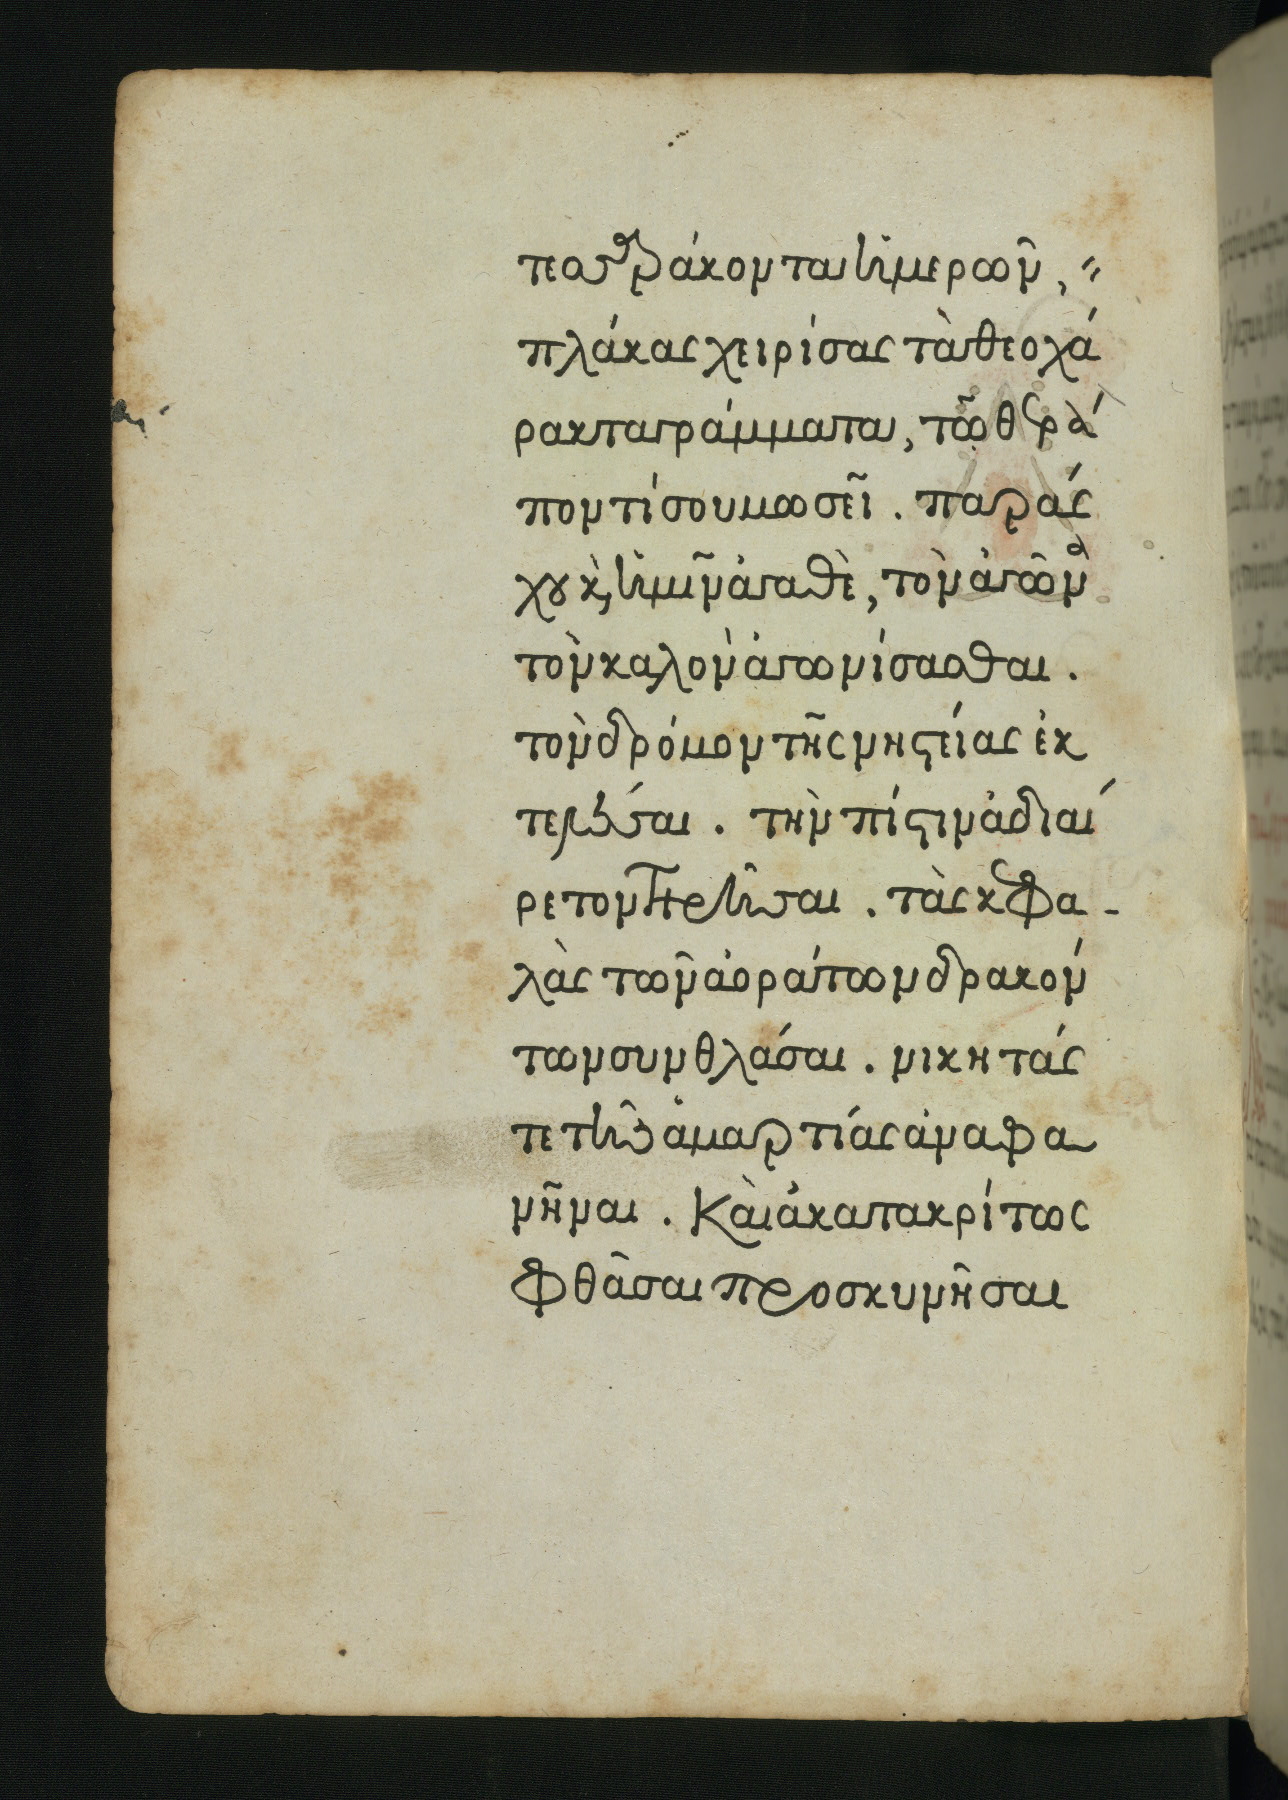 τεσσαράκοντα ἡμερῶν, "
πλάκας χειρίσας τὰ θεοχά
ρακτα γράμματα, τῷ θερά
ποντί σου μωσεῖ. παράς
χου κ, ἡμῖν ἀγαθὲ, τὸν ἀγῶνα
τὸν καλὸν ἀγωνίσασθαι.
τὸν δρόμον τῆς νηστείας ἐκ
τελέσαι. τὴν πίστιν ἀδιαί
ρετον τηρῆσαι. τὰς κεφα-
λὰς τῶν ἀοράτων δρακόν
των συνθλάσαι. νικητάς
τε τῆς ἁμαρτίας ἀναφα
νῆναι. Καὶ ἀκατακρίτως
φθᾶσαι προσκυνῆσαι